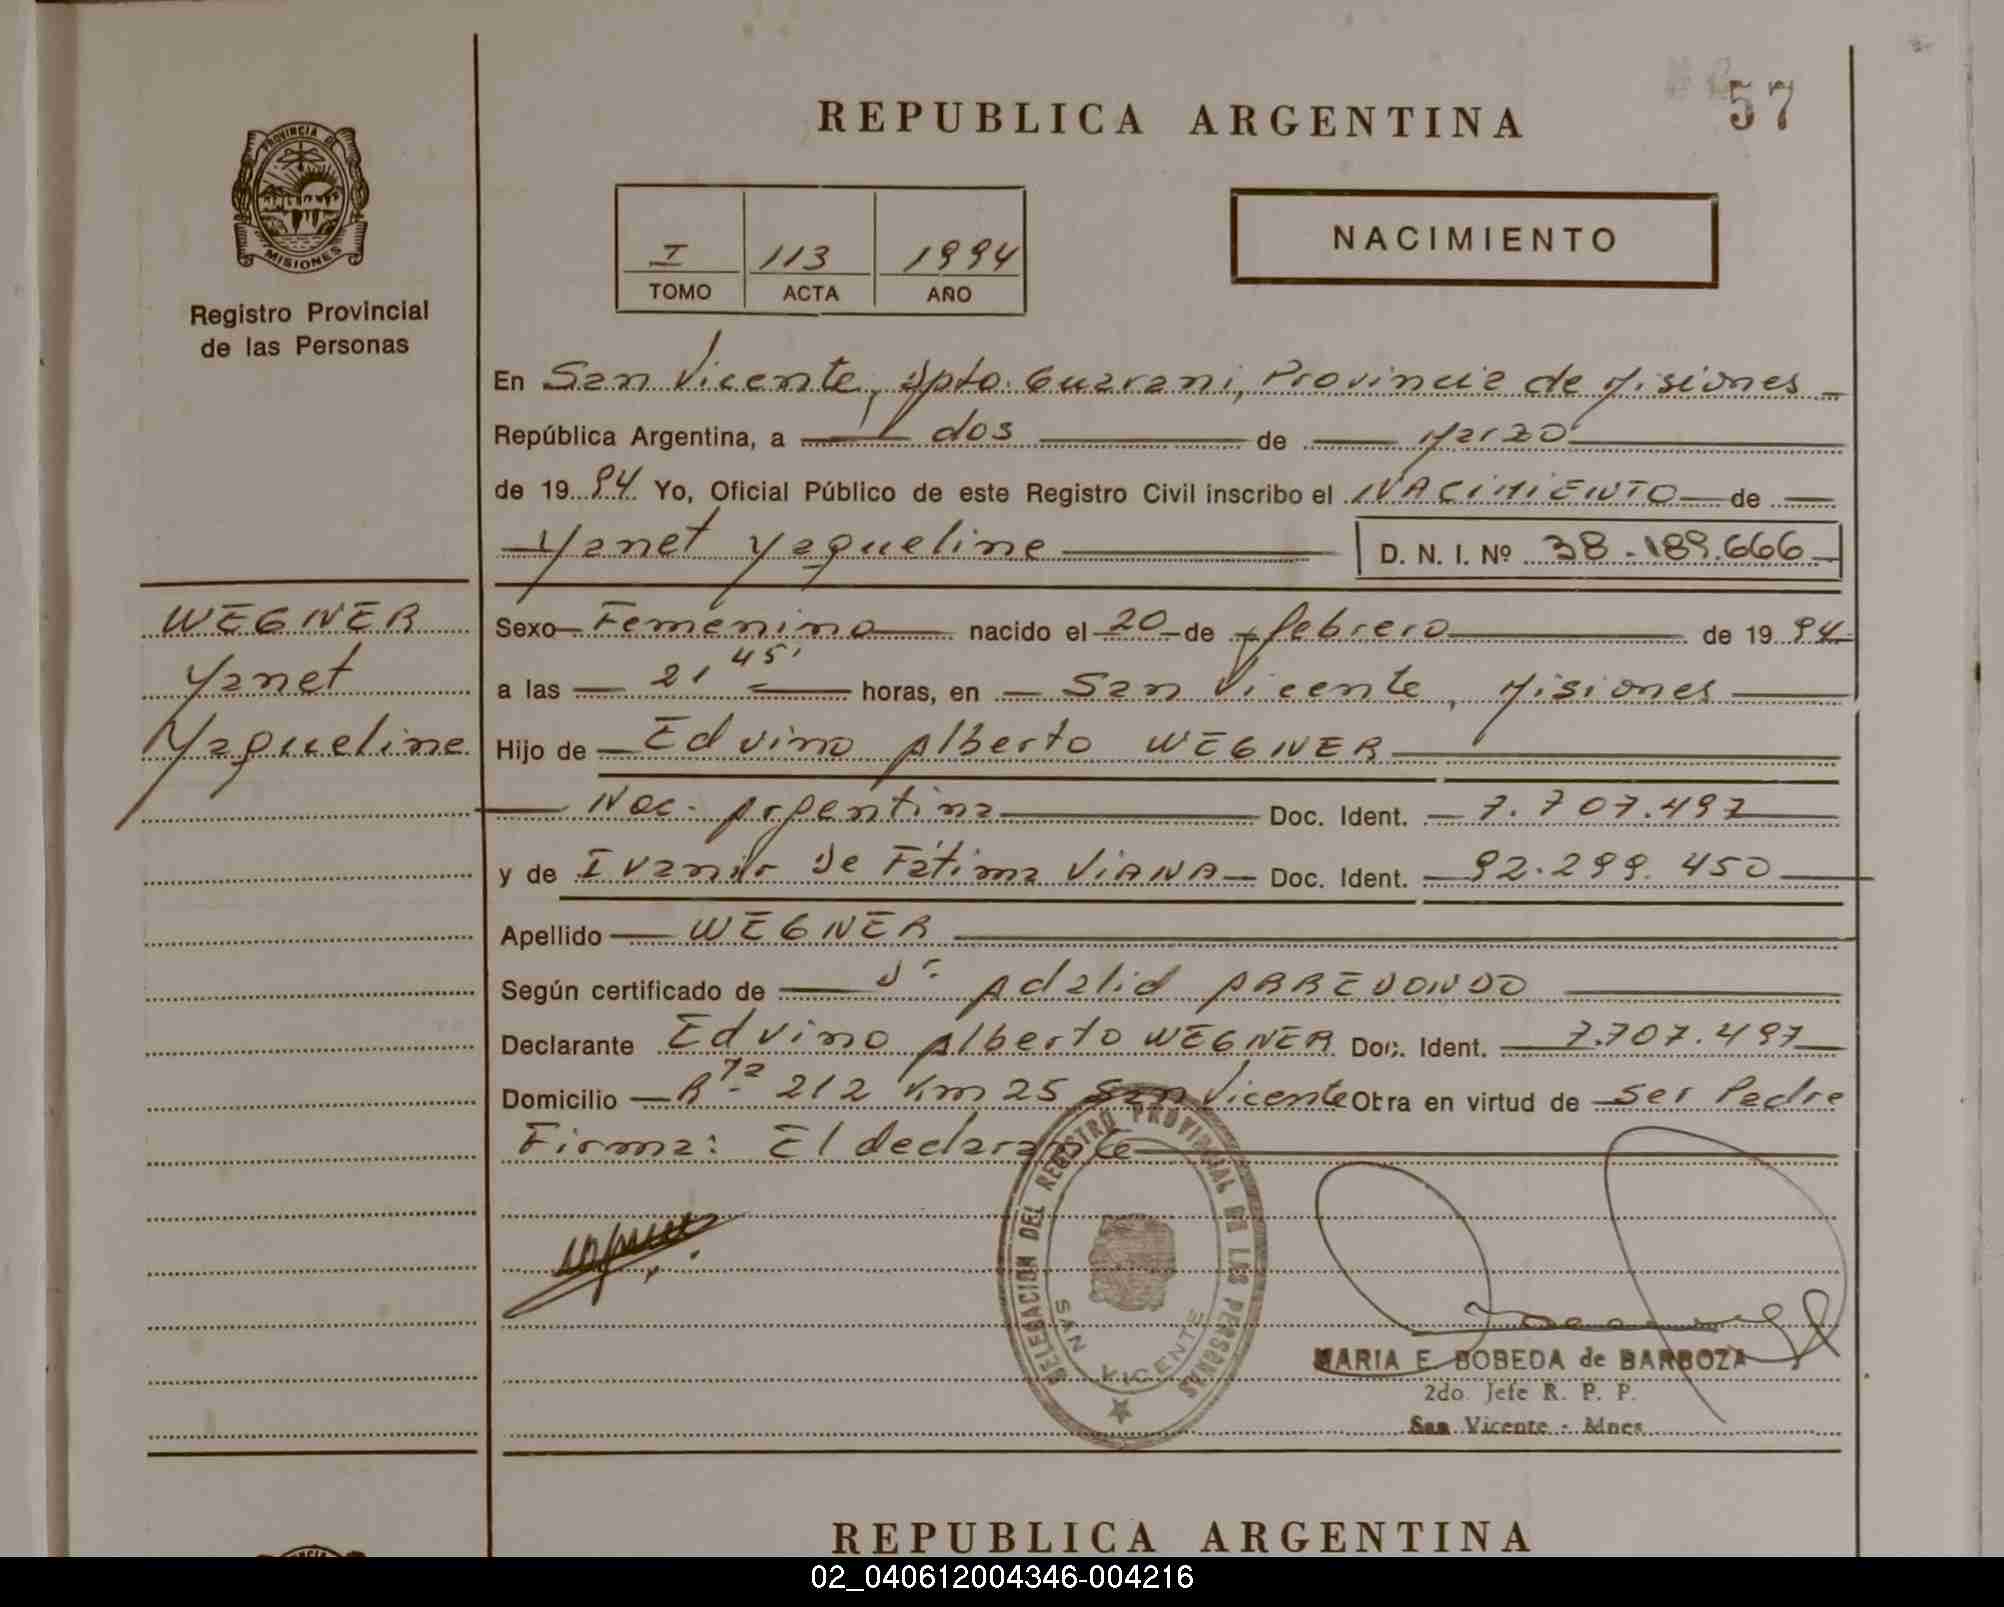 57
REPUBLICA ARGENTINA
PROVINCIA DE
MISIONES
Registro Provincial
de las Personas
I 113 1994
TOMO ACTA AÑO
NACIMIENTO
En San Vicente, Dpto. Guarani, Provincia de Misiones
República Argentina, a dos de Marzo
de 1994 Yo, Oficial Público de este Registro Civil inscribo el NACIMIENTO de
Yanet Yaqueline D. N. I. Nº 38.189.666
WEGNER
Yanet
Yaqueline
Sexo Femenino nacido el 20 de febrero de 1994
a las 21 45' horas, en San Vicente, Misiones
Hijo de Edvino Alberto WEGNER
Nac. Argentina Doc. Ident. 7.707.497
y de Ivanir De Fátima VIANA Doc. Ident. 92.299.450
Apellido WEGNER
Según certificado de Dr. Adalid ARREDONDO
Declarante Edvino Alberto WEGNER Doc. Ident. 7.707.497
Domicilio Rta. 212 Km 25 San Vicente Obra en virtud de ser Padre
Firma: El declarante
DELEGACION DEL REGISTRO PROVINCIAL DE LAS PERSONAS
SAN VICENTE
MARIA E. BOBEDA de BARBOZA
2do. Jefe R. P. P.
San Vicente - Mnes
REPUBLICA ARGENTINA
02_040612004346-004216